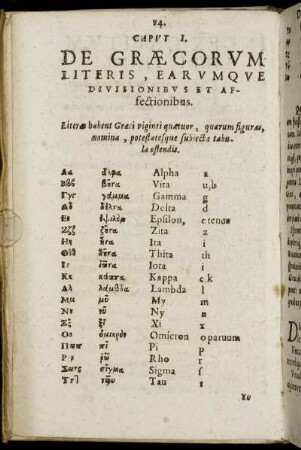 14.
CAPVT I.
DE GRÆCORVM
LITERIS, EARVMQVE
DIVISIONIBVS ET AF-
fectionibus.
Literas habent Græci viginti quatuor, quarum figuras,
nomina, potestatesque subiecta tabu-
la ostendit.
Αα ἄλφα Alpha a
Ββϐ βῆτα Vita u,b
Γγ γάμμα Gamma g
Δδ δέλτα Delta d
Εε ἐψιλὸν Epsilon, e tenue
Ζζ ζῆτα Zita z
Ηη ἦτα Ita i
Θθ θῆτα Thita th
Ιι ἰῶτα Iota i
Κκ κάππα Kappa c,k
Λλ λάμβδα Lambda l
Μμ μῦ My m
Νν νῦ Ny n
Ξξ ξῖ Xi x
Οο ὀμικρὸν Omicron o paruum
Ππ πῖ Pi p
Ρρ ῥῶ Rho r
Σσς σῖγμα Sigma ſ
Ττ ταῦ Tau t
Yu